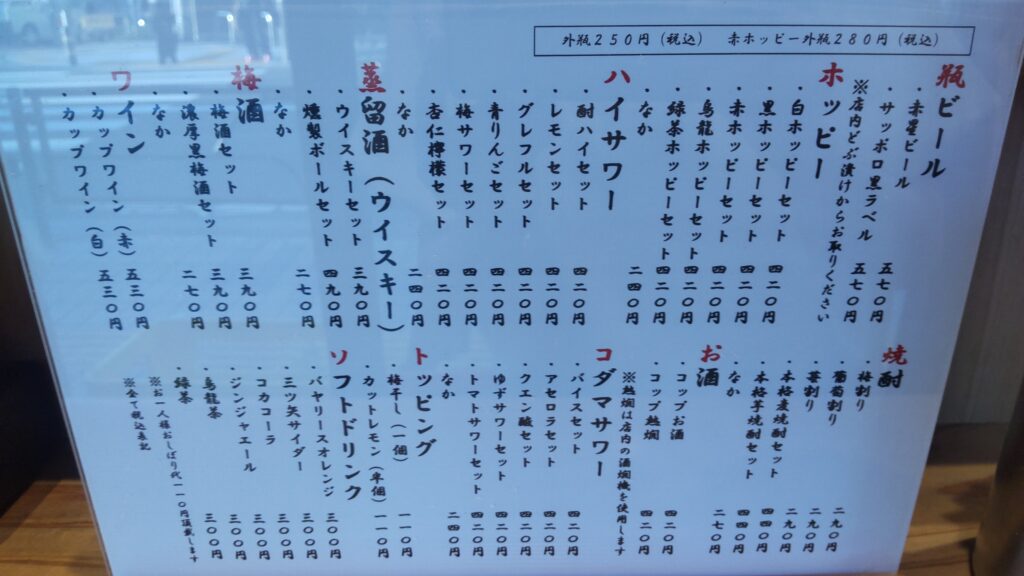 外瓶250円（税込）　赤ホッピー外瓶280円（税込）
瓶ビール
・赤星ビール 五七〇円
・サッポロ黒ラベル 五七〇円
※店内どぶ漬けからお取りください
ホッピー
・白ホッピーセット 四二〇円
・黒ホッピーセット 四二〇円
・赤ホッピーセット 四二〇円
・烏龍ホッピーセット 四二〇円
・緑茶ホッピーセット 四二〇円
・なか 二四〇円
ハイサワー
・酎ハイセット 四二〇円
・レモンセット 四二〇円
・グレフルセット 四二〇円
・青りんごセット 四二〇円
・梅サワーセット 四二〇円
・杏仁檸檬セット 四二〇円
・なか 二四〇円
蒸留酒（ウイスキー）
・ウイスキーセット 三九〇円
・燻製ボールセット 四九〇円
・なか 二七〇円
梅酒
・梅酒セット 三九〇円
・濃厚黒梅酒セット 三九〇円
・なか 二七〇円
ワイン
・カップワイン（赤） 五三〇円
・カップワイン（白） 五三〇円
焼酎
・梅割り 二九〇円
・葡萄割り 二九〇円
・葉割り 二九〇円
・本格麦焼酎セット 四四〇円
・本格芋焼酎セット 四四〇円
・なか 二七〇円
お酒
・コップお酒 四二〇円
・コップ熱燗 四二〇円
※熱燗は店内の酒燗機を使用します
コダマサワー
・バイスセット 四二〇円
・アセロラセット 四二〇円
・クエン酸セット 四二〇円
・ゆずサワーセット 四二〇円
・トマトサワーセット 四二〇円
・なか 二四〇円
トッピング
・梅干し（一個） 一一〇円
・カットレモン（半個） 一一〇円
ソフトドリンク
・バヤリースオレンジ 三〇〇円
・三ツ矢サイダー 三〇〇円
・コカコーラ 三〇〇円
・ジンジャエール 三〇〇円
・烏龍茶 三〇〇円
・緑茶 三〇〇円
※お一人様おしぼり代一一〇円頂戴します
※全て税込表記